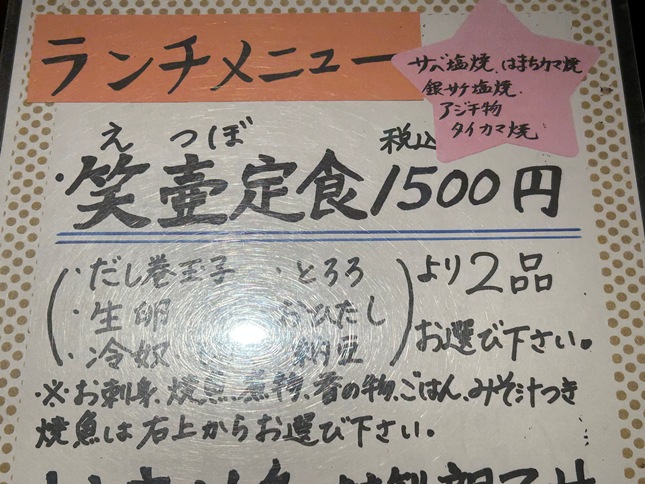 ランチメニュー
サバ塩焼、はまちカマ焼
銀サケ塩焼、
アジ干物
タイカマ焼
えつぼ
税込
・笑壷定食1500円
・だし巻玉子 ・とろろ
・生卵 おひたし
・冷奴 納豆
より2品
お選び下さい。
・※お刺身、焼魚、煮物、香の物、ごはん、みそ汁つき
焼魚は右上からお選び下さい。